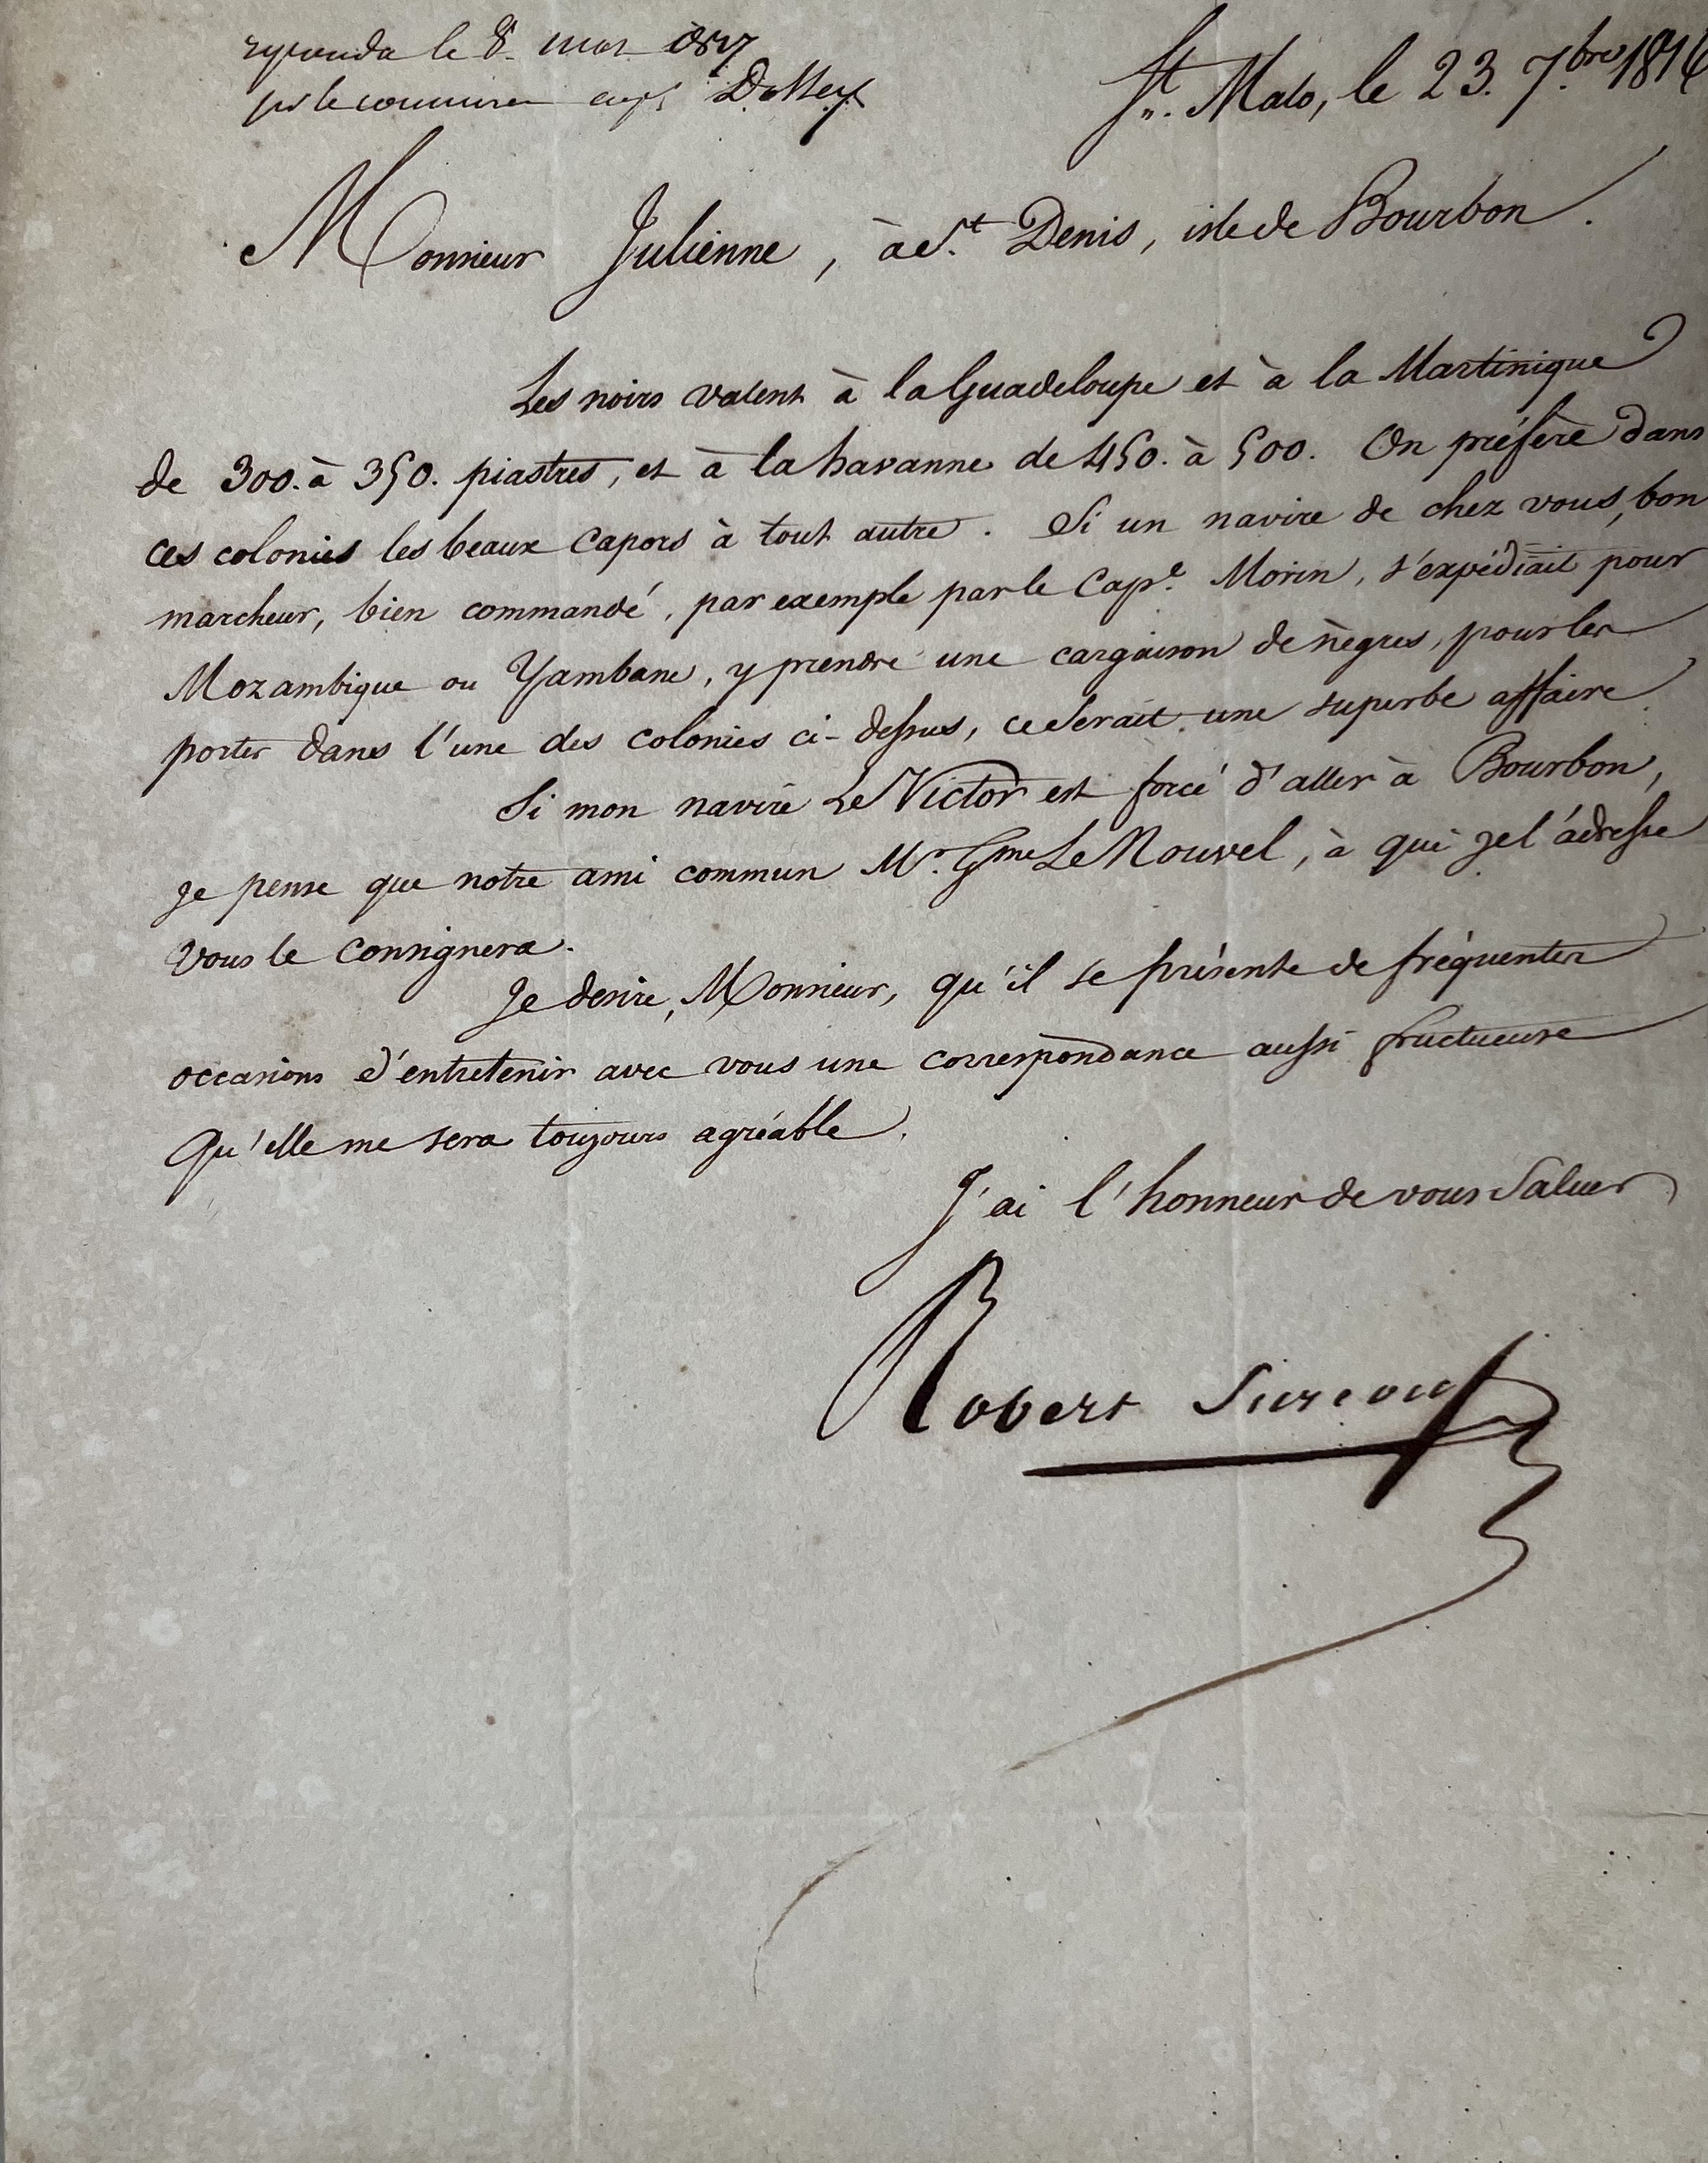 repondu le 8 mars 1817
par le
St. Malo, le 23. 7.bre 1816
Monsieur Julienne, à St. Denis, isle de Bourbon.
Les noirs valent à la Guadeloupe et à la Martinique
de 300. à 350. piastres, et à la havanne de 450. à 500. On préfère dans
ces colonies les beaux capors à tout autre. Si un navire de chez vous, bon
marcheur, bien commandé, par exemple par le Cap.e Morin, s'expédiait pour
Mozambique ou Yambane, y prendre une cargaison de nègres, pour les
porter dans l'une des colonies ci-dessus, ce serait une superbe affaire.
Si mon navire Le Victor est forcé d'aller à Bourbon,
je pense que notre ami commun Mr. Gme Le Nouvel, à qui je l'adresse
vous le consignera.
Je desire, Monsieur, qu'il se présente de fréquentes
occasions d'entretenir avec vous une correspondance aussi fructueuse
Qu'elle me sera toujours agréable.
J'ai l'honneur de vous saluer
Robert Surcouf